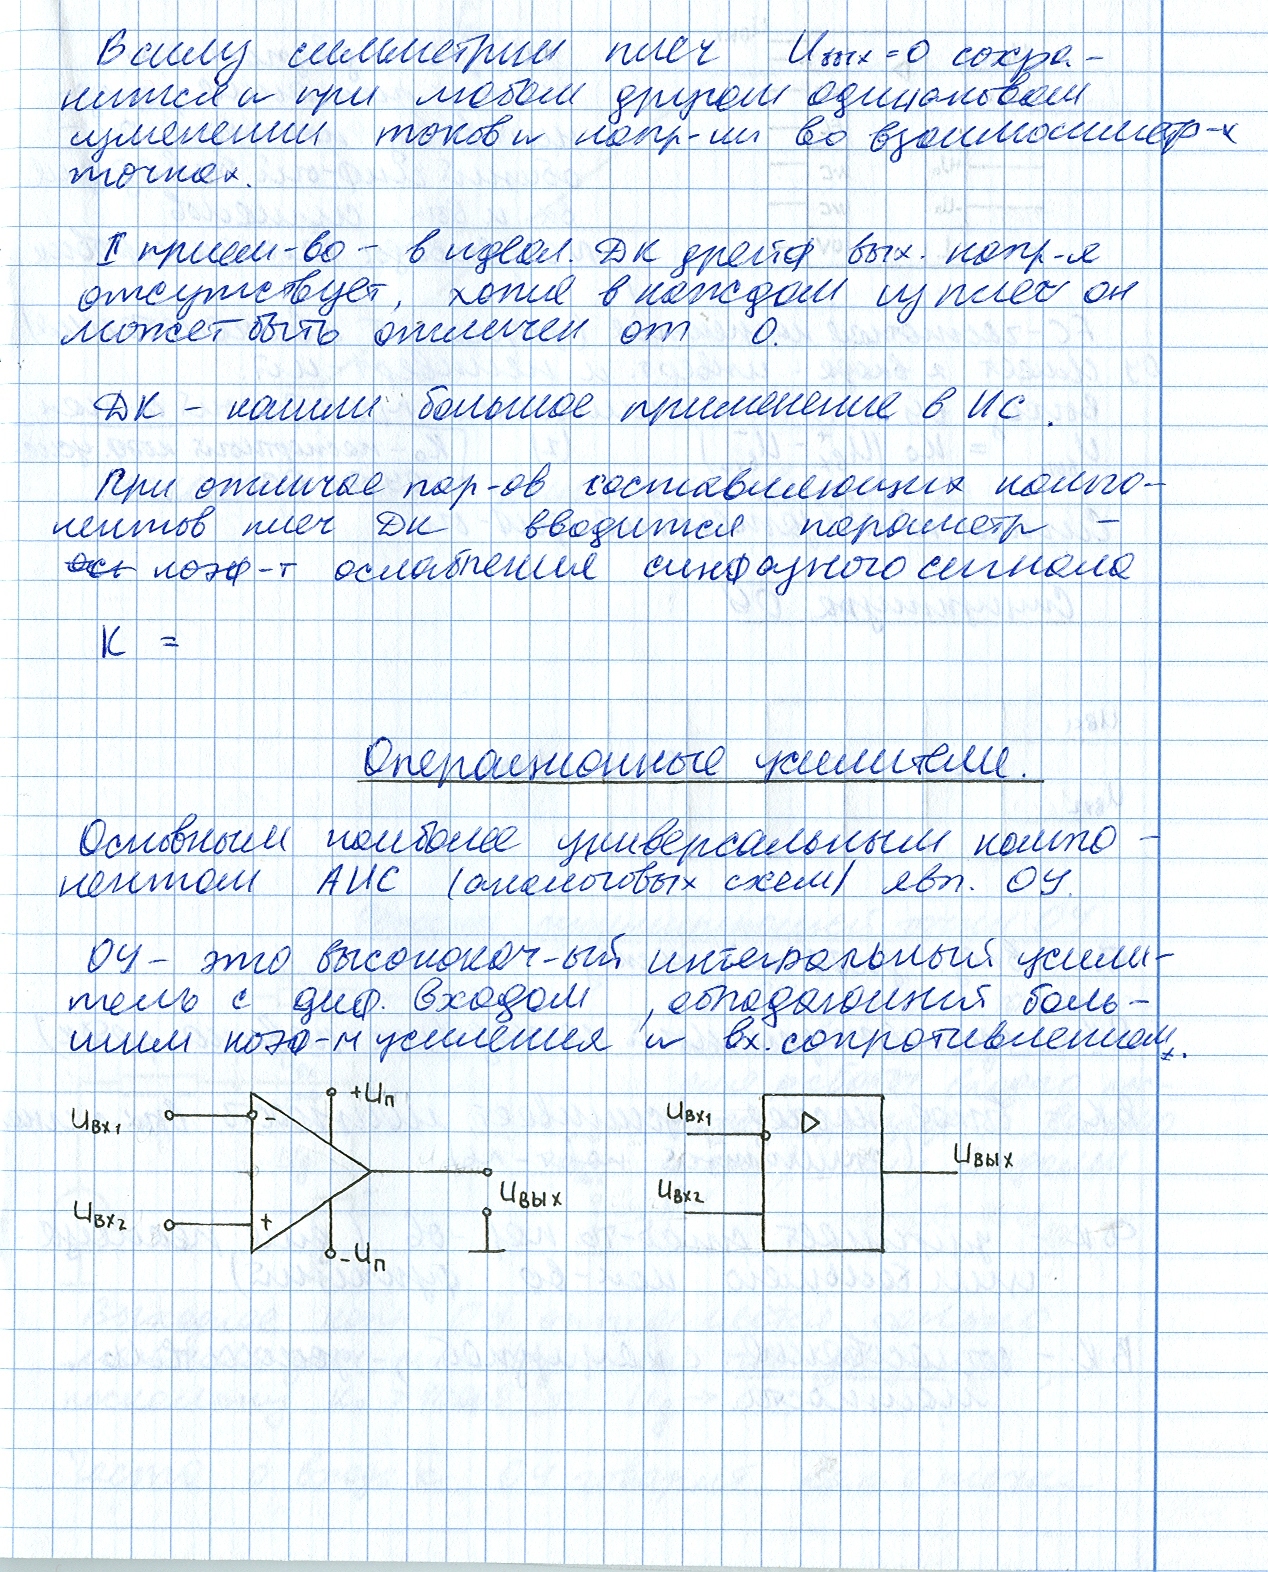 В силу симметрии плеч Uвых=0 сохра-
нится и при любом другом одинаковом
изменении токов и напр-ий во взаимосиметр-х
точках.
II преим-во - в идеал. ДК дрейф вых. напр-я
отсутствует, хотя в каждом из плеч он
может быть отличен от 0.
ДК - нашли большое применение в ИС.
При отличае пар-ов составляющих компо-
нентов плеч ДК вводится параметр -
коэф-т ослабления синфазного сигнала
К =
Операционные усилители.
Основным наиболее универсальным компо-
нентом АИС (аналоговых схем) явл. ОУ.
ОУ - это высококач-ый интегральный усили-
тель с диф. входом, обладающий боль-
шим коэф-м усиления и вх. сопротивлением.
+Uп
Uвх1
-
Uвх2
+
Uвых
-Uп
Uвх1
▷
Uвх2
Uвых